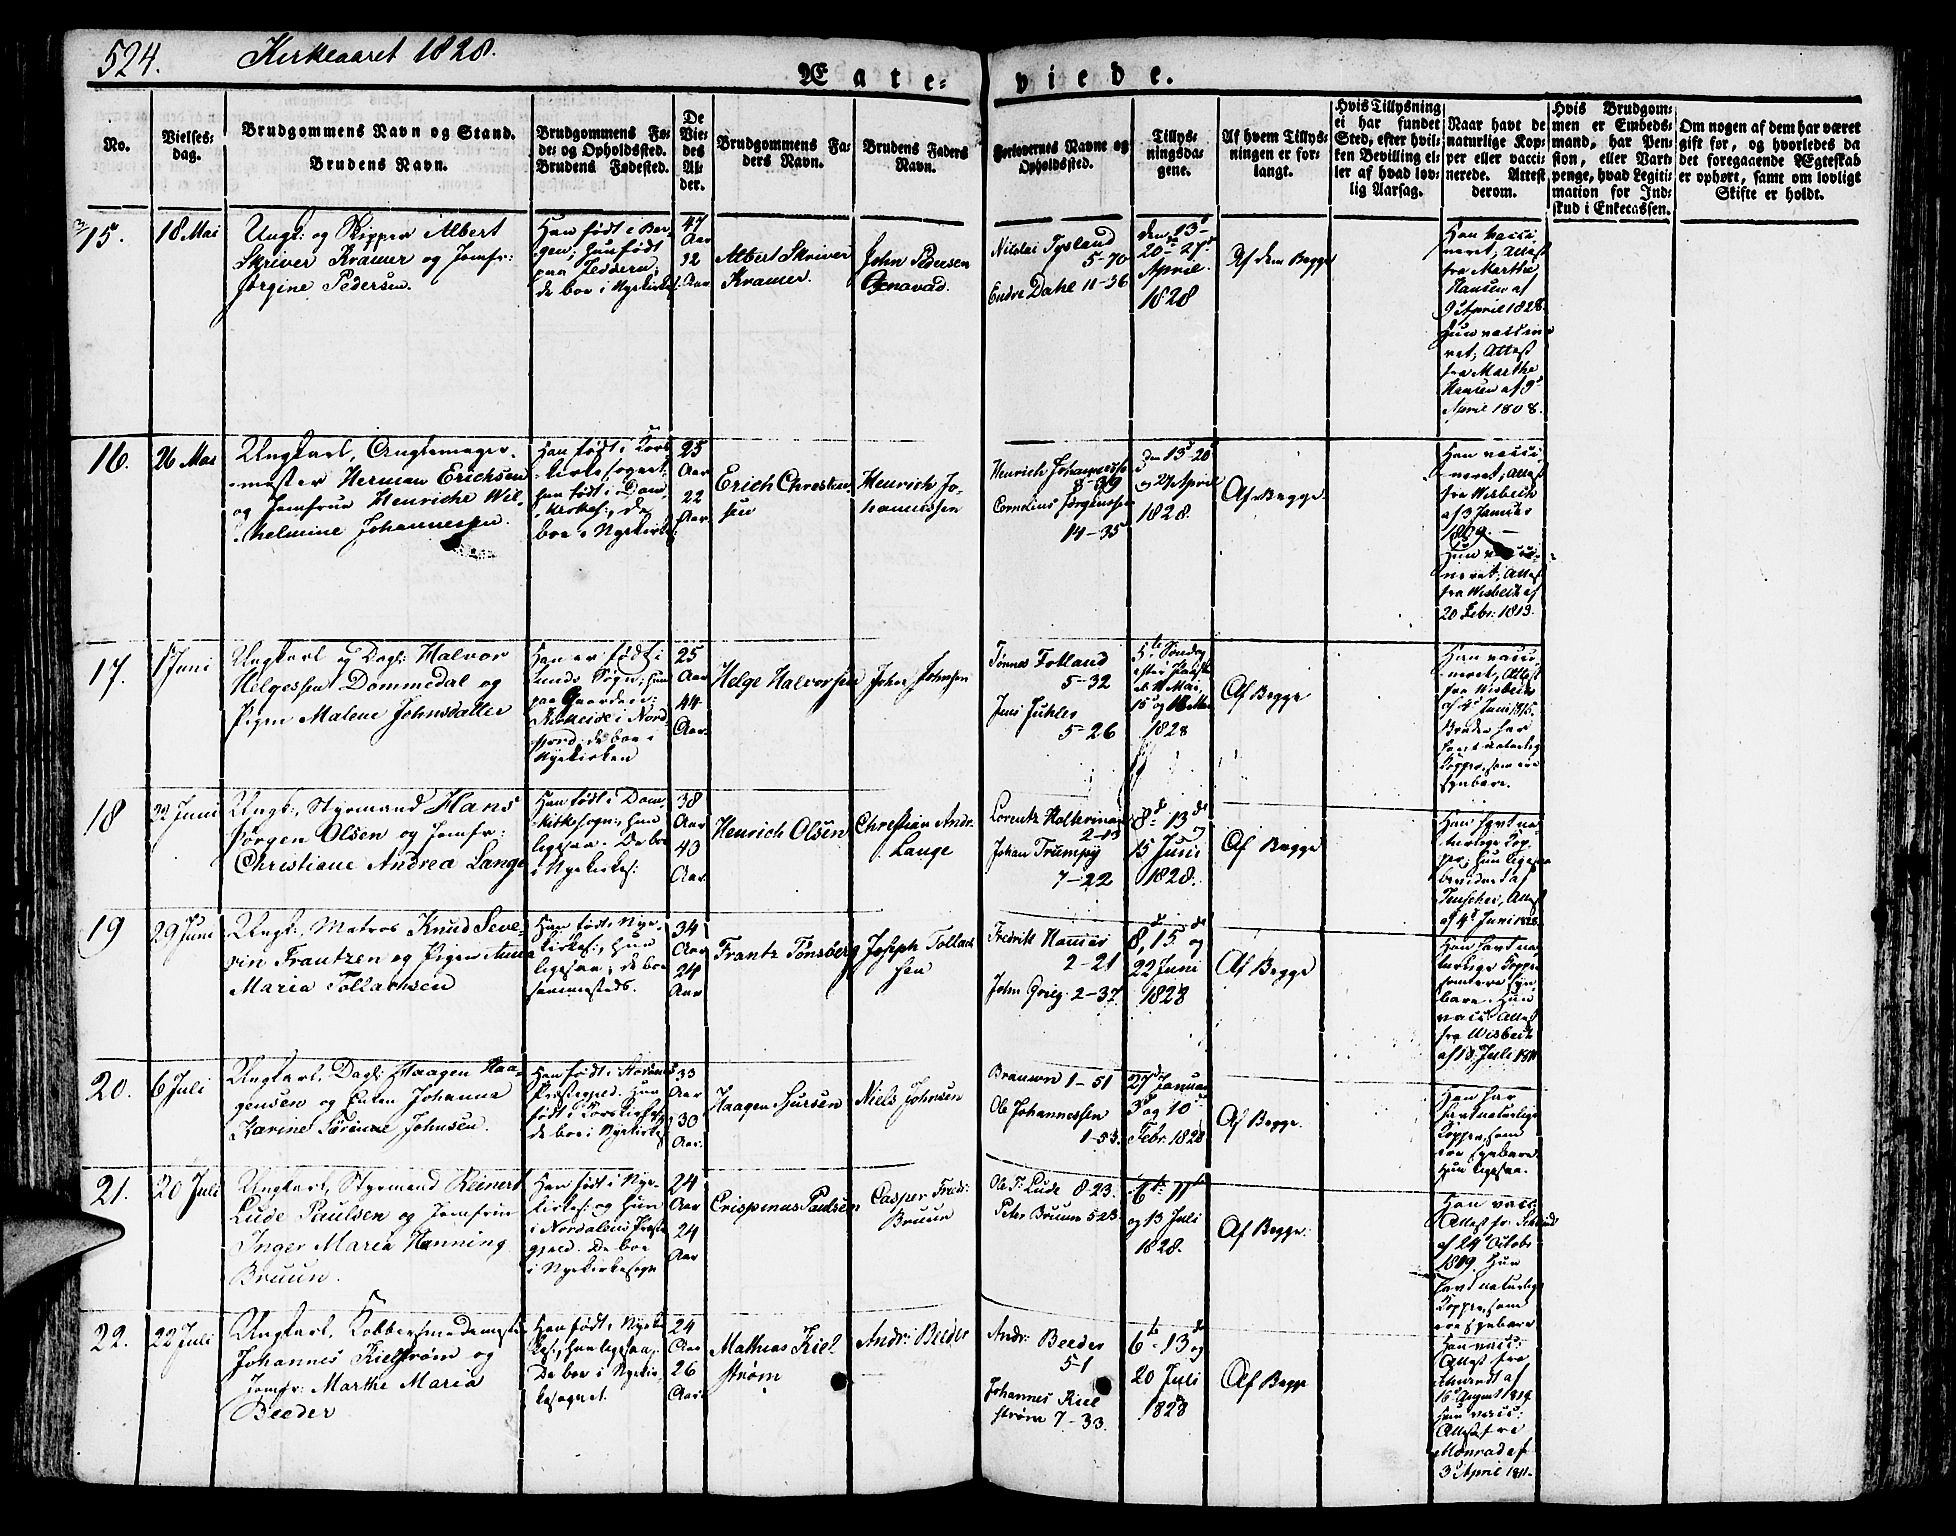 524. Kirkeaaret 1828.
Ægte-viede.
No.
Vielses-
dag.
Brudgommens Navn og Stand.
Brudens Navn.
Brudgommens Fø-
de- og Opholdssted.
Brudens Fødested.
De
Vie-
des
Al-
der.
Brudgommens Fa-
ders Navn.
Brudens Faders
Navn.
Forlovernes Navne og
Opholdssted.
Tillys-
ningsda-
gene.
Af hvem Tillys-
ningen er for-
langt.
Hvis Tillysning
ei har fundet
Sted, efter hvil-
ken Bevilling el-
ler af hvad lov-
lig Aarsag.
Naar havt de
naturlige Kop-
per eller vacci-
nerede. Attest
derom.
Hvis Brudgom-
men er Embeds-
mand, har Pen-
sion, eller Vart-
penge, hvad Legiti-
mation for Ind-
skud i Enkecassen.
Om nogen af dem har været
gift før, og hvorledes da
det foregaaende Ægteskab
er ophørt, samt om lovligt
Skifte er holdt.
15.
18 Mai
Ungk: og Skipper Albert
Skriver Kramer og Jomfr:
Jørgine Pedersen.
Han født i Ber-
gen; hun født
paa Jeddern;
de boe i Nyekirkes:
47
Aar
32
Aar
Albert Skriver
Kramer.
John Pedersen
Nicolai Tysland
5-70
Endre Dahl 11-36
den 13d
20de 27de
April.
1828
Af dem Begge
Han vacci-
neret, Attest
fra Marthe
Hansen af
9d April 1828.
Hun vaccine-
ret; Attest
fra Marthe
Hansen af 9d
April 1808.
16.
26 Mai
Ungkarl,
mester Herman Erichsen
og Jomfrue Henriche Wil-
helmine Johannessen.
Han født i Kors-
kirkesognet;
hun født i Dom-
kirkes:; de
boe i Nyekirkes:
25
Aar
22
Aar.
Erich Christen-
sen
Henrich Jo-
hannessen
Henrich Johannessen
8-39
Cornelius Jørgenssen
14-35
den 13d 20d
og 27 April
1828.
Af Begge
Han vacci-
neret; Attest
fra Wisbech
af 3 Januar
1809. —
Hun vacci-
neret; Attest
fra Wisbech af
20 Febr: 1813.
17.
1 Juni
Ungkarl og Dagk: Halvor
Helgessen Dommedal og
Pigen Malene Johnsdatter
Han er født i
Lunds Sogn; hun
paa Gaarden
i Nord-
fjord; de boe i
Nyekirken
25
Aar
44
Aar.
Helge Halvorsen
John Johnsen
Tønnes Fotland
5-32
Jens Juhler
5-26
5te Søndag
efter Paaske
d: 11 Mai,
15 og 18 Mai
1828
Af Begge
Han vacci-
neret, Attest
fra Wisbech
af 4d Juni 1815.
Bruden har
havt naturlige
Kopper, som ere
synbare.
18
22 Juni
Ungk:, Styrmand Hans
Jørgen Olsen og Jomfr:
Christiane Andrea Lange
Han født i Dom-
kirkesogn; hun
ligesaa. De boe
i Nyekirkes:
38
Aar
40
Aar.
Henrich Olsen
Christian Andr:
Lange
Lorentz Holterman
2-15
Johan Trumpy
7-22
8de 13de
og
15 Juni
1828.
Af Begge
Han havt na-
turlige Kop-
per; hun ligesaa
bevidnet af
Attest
af 4d Juni 1828
19
29 Juni
Ungk:, Matros Knud Seve-
rin Frantzen og Pigen Anne
Maria Tollachsen
Han født i Nye-
kirkes:, hun
ligesaa; de boe
sammesteds.
34
Aar
24
Aar
Frantz Tønsberg
Joseph Tollach-
sen
Fredrik Hansen
2-21
John Grieg 2-37.
8, 15de og
22 Juni
1828
Af Begge
Han havt na-
turlige Kopper
som ere syn-
bare. Hun
vacc: Attest
fra Wisbech
af 18 Juli
20.
6 Juli
Ungkarl, Dagk: Haagen Haa-
gensen og Enken Johanna
Karine Sørinne Johnsen.
Han født i
Præstegjed: Hun
født i Korskirkes:
de boe i Nyekirkes:
33
Aar
30
Aar.
Haagen Sjursen
Niels Johnsen
Braunn 1-51
Ole Johannessen
1-53.
27de Januar
3d og 10d
Febr: 1828
Af Begge.
Han har
havt naturlige
Kopper, som
ere synbare
Hun ligesaa.
21.
20 Juli
Ungkarl, Styrmand Reinert
Lude Paulsen og Jomfrue
Inger Maria Hanning
Bruun.
Han født i Nye-
kirkes: og hun
i Nordalens Præste-
gjeld. De boe
i Nyekirkesogn
24
Aar
24
Aar
Crispinus Paulsen
Casper Fredr:
Bruun
Ole T: Lude 8-23.
Peter Bruun 523.
6te
og 13 Juli
1828.
Af Begge.
Han vacc:
Attest fr:
af 24d Octobr
1809. Hun
havt naturlige
Kopper, som
ere synbare
22.
22 Juli
Ungkarl, Kobbersmedemester
Johannes Kielstrøm og
Jomfr: Marthe Maria
Beeder
Han født i Nyekir-
kes:, hun ligesaa.
De boe i Nyekir-
kesognet.
24
Aar
26
Aar.
Mathias Kiel
strøm
Andr: Beeder
Andr: Beeder
5-1
Johannes Kiel
strøm 7-33.
6te 13de og
20 Juli
1828
Af Begge
Han vacc:
Attest fra
af
16d August 1814
Hun vacc:
Attest fra
Monrad af
3d April 1811.